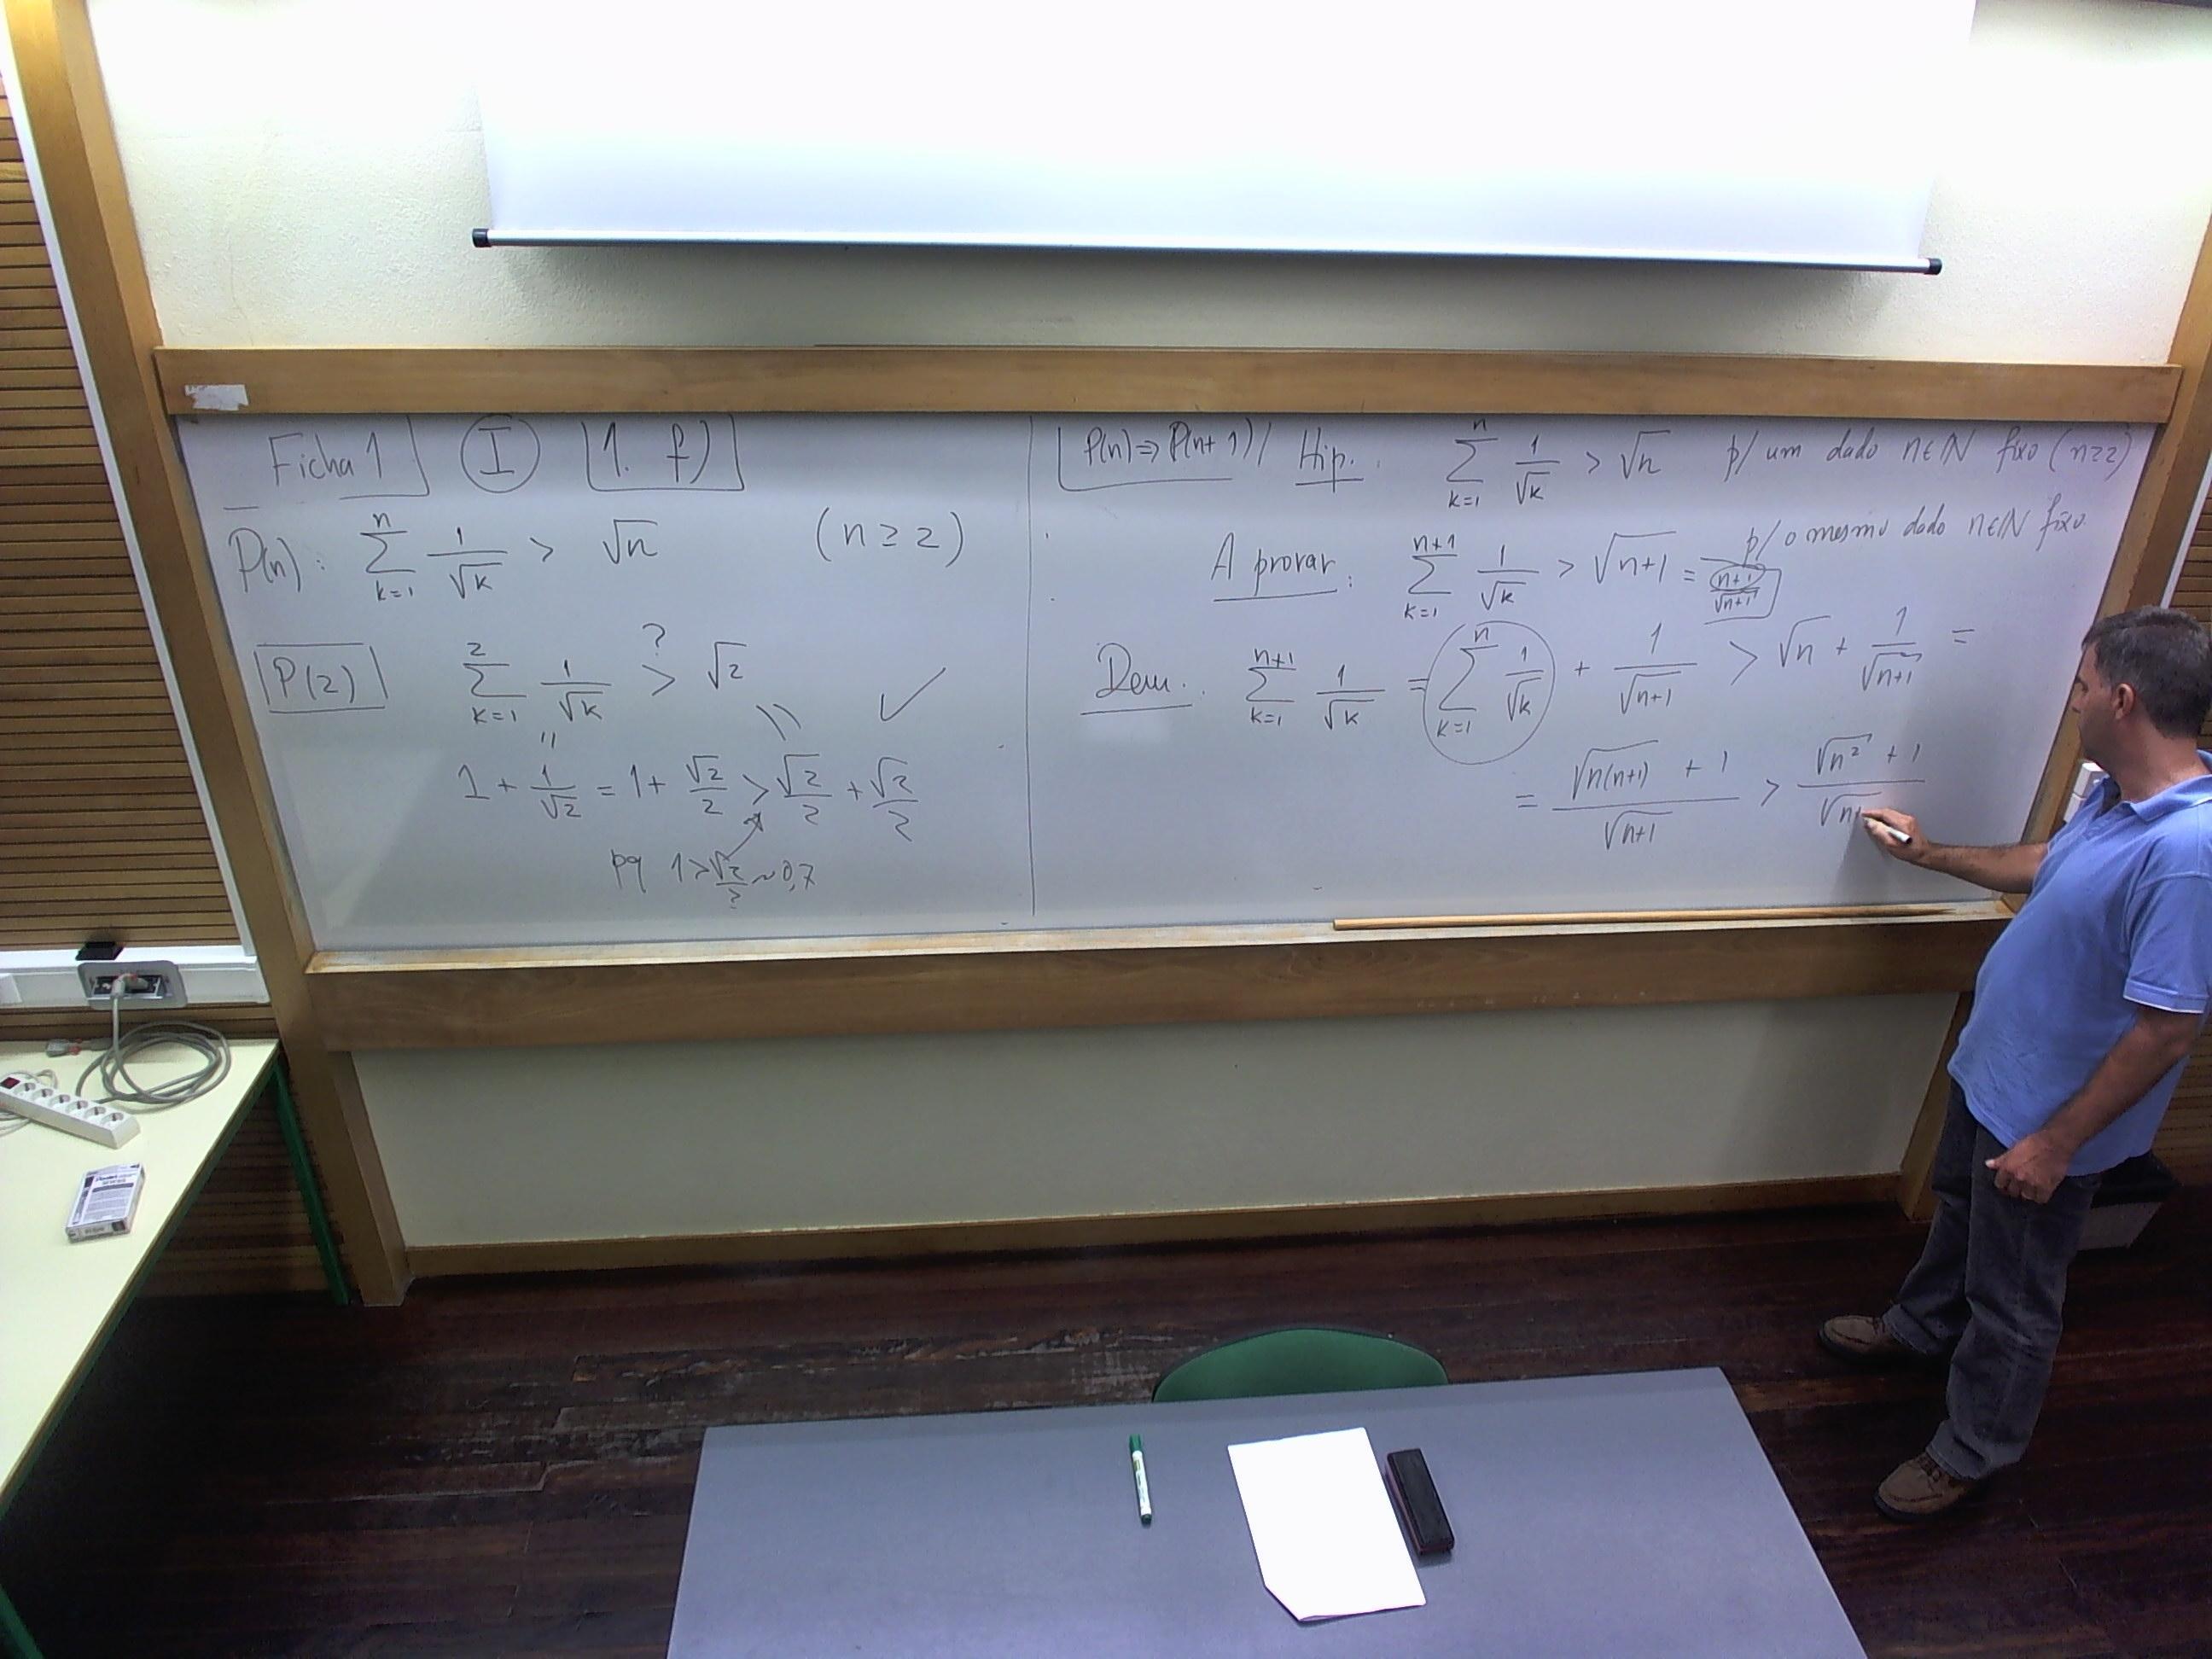 Ficha 1 I 1. f)
P(n): \sum_{k=1}^{n} \frac{1}{\sqrt{k}} > \sqrt{n} (n ≥ 2)
P(2) \sum_{k=1}^{2} \frac{1}{\sqrt{k}} \overset{?}{>} \sqrt{2} ✓
" \\
1 + \frac{1}{\sqrt{2}} = 1 + \frac{\sqrt{2}}{2} > \frac{\sqrt{2}}{2} + \frac{\sqrt{2}}{2}
pq 1 > \frac{\sqrt{2}}{2} ~ 0,7
P(n) ⇒ P(n+1) / Hip.: \sum_{k=1}^{n} \frac{1}{\sqrt{k}} > \sqrt{n} p/ um dado n∈ℕ fixo (n≥2)
A provar: \sum_{k=1}^{n+1} \frac{1}{\sqrt{k}} > \sqrt{n+1} = \frac{n+1}{\sqrt{n+1}} p/ o mesmo dado n∈ℕ fixo.
Dem.: \sum_{k=1}^{n+1} \frac{1}{\sqrt{k}} = \sum_{k=1}^{n} \frac{1}{\sqrt{k}} + \frac{1}{\sqrt{n+1}} > \sqrt{n} + \frac{1}{\sqrt{n+1}} =
= \frac{\sqrt{n(n+1)} + 1}{\sqrt{n+1}} > \frac{\sqrt{n^2} + 1}{\sqrt{n+}}